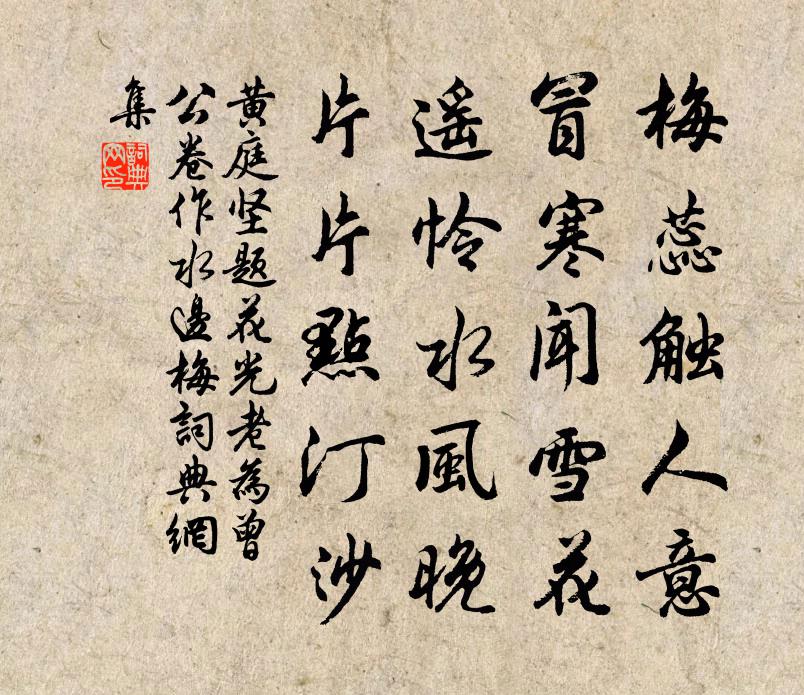 梅蕊触人意
冒寒闻雪花
遥怜水風晚
片片點汀沙
黄庭坚题花光老為曾
公卷作水邊梅詞典網
集
詞典網印